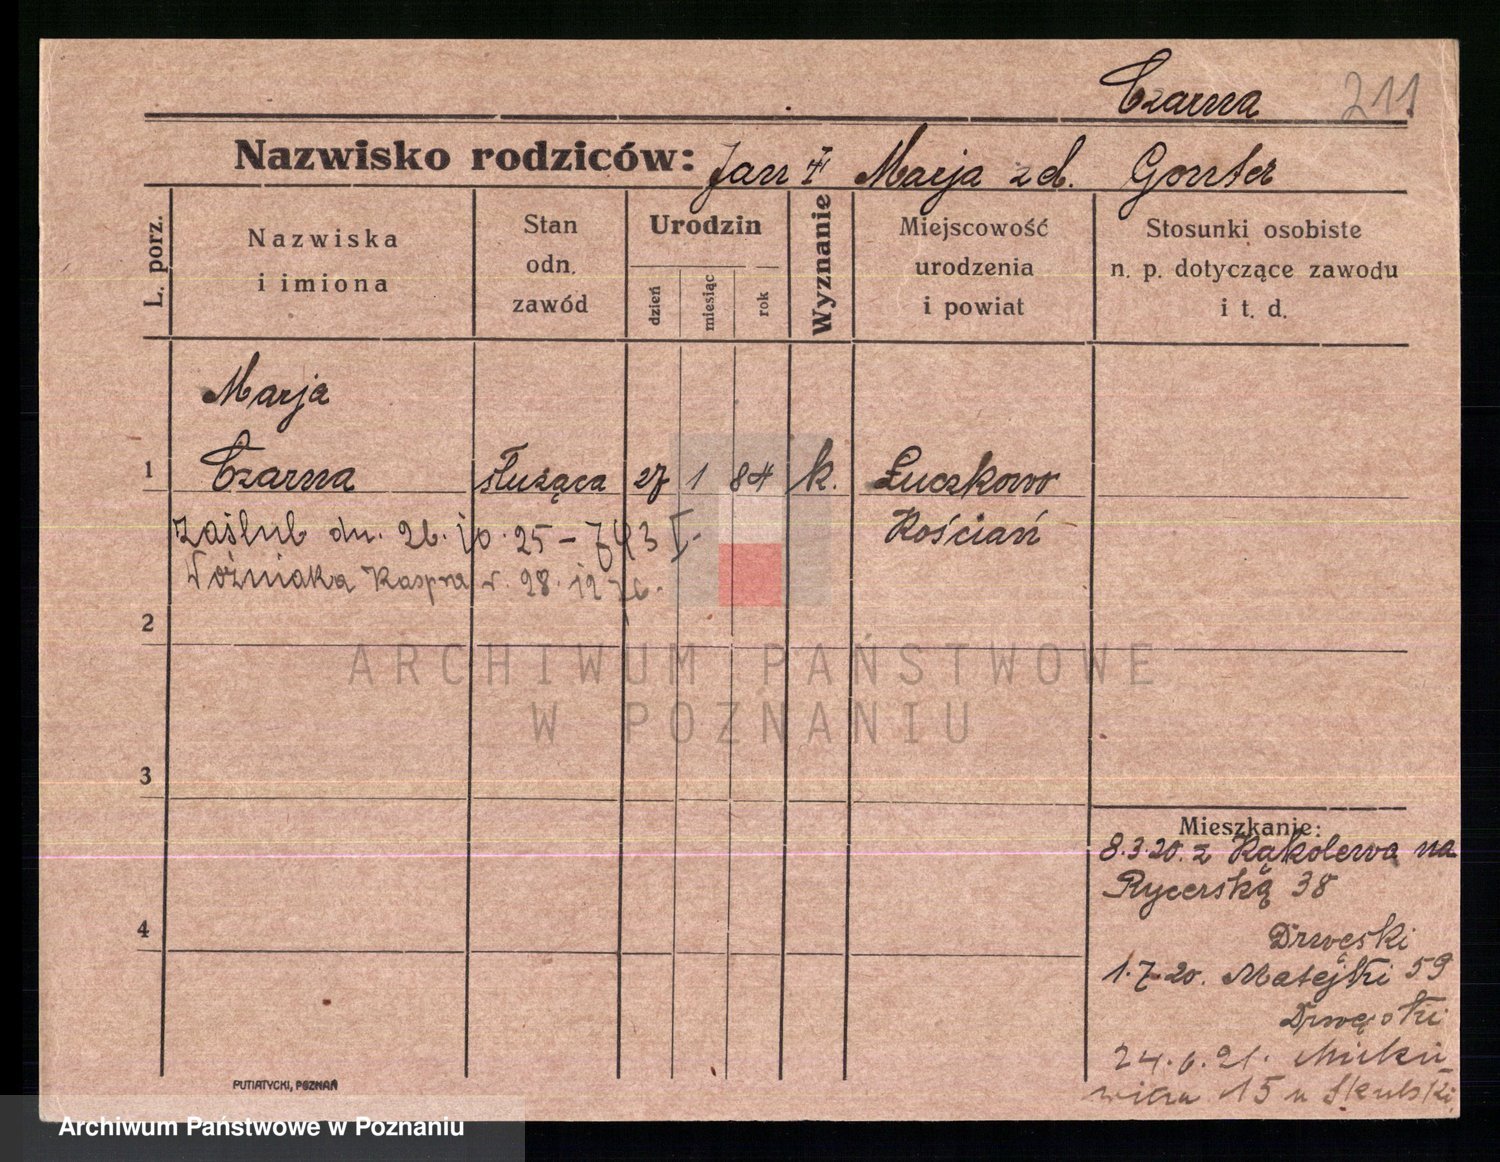 Czarna 211
Nazwisko rodziców: Jan † Marja z d. Gonster
L. porz.
Nazwiska
i imiona
Stan
odn.
zawód
Urodzin
dzień
miesiąc
rok
Wyznanie
Miejscowość
urodzenia
i powiat
Stosunki osobiste
n. p. dotyczące zawodu
i t. d.
Marja
1 Czarna służąca 27 1 84 k. Łuczkowo
Kościań
zaślub dn. 26.10.25 – 743 I.
Woźniaka Kaspra r. 28.12.76.
2
ARCHIWUM PAŃSTWOWE
W POZNANIU
3
Mieszkanie:
8.3.20. z Kąkolewa na
Rycerską 38
4
Drwęski
1.7.20. Matejki 59
Drwęski
24.6.21. Micki
wicza 15 u Skubski
PUTIATYCKI, POZNAŃ
Archiwum Państwowe w Poznaniu